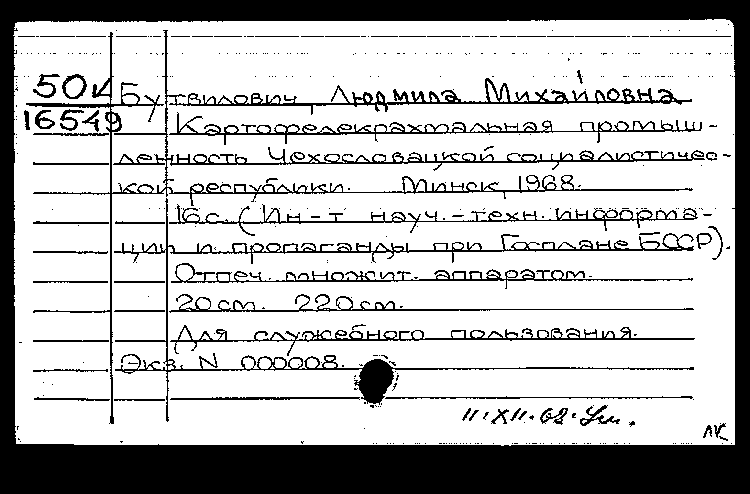 50к Бутвилович, Людмила Михайловна
16549
Картофелекрахмальная промыш-
ленность Чехословацкой социалистичес-
кой республики. Минск, 1968.
16 с. (Ин-т науч.-техн. информа-
ции и пропаганды при Госплане БССР).
Отпеч. множит. аппаратом.
20 см. 220 см.
Для служебного пользования.
Экз. N 000008.
11.XII.68.
ЛК